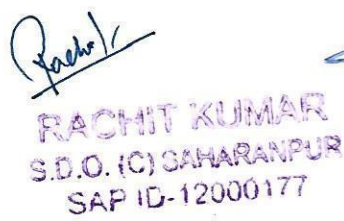 Rachit
RACHIT KUMAR
S.D.O. (C) SAHARANPUR
SAP ID-12000177